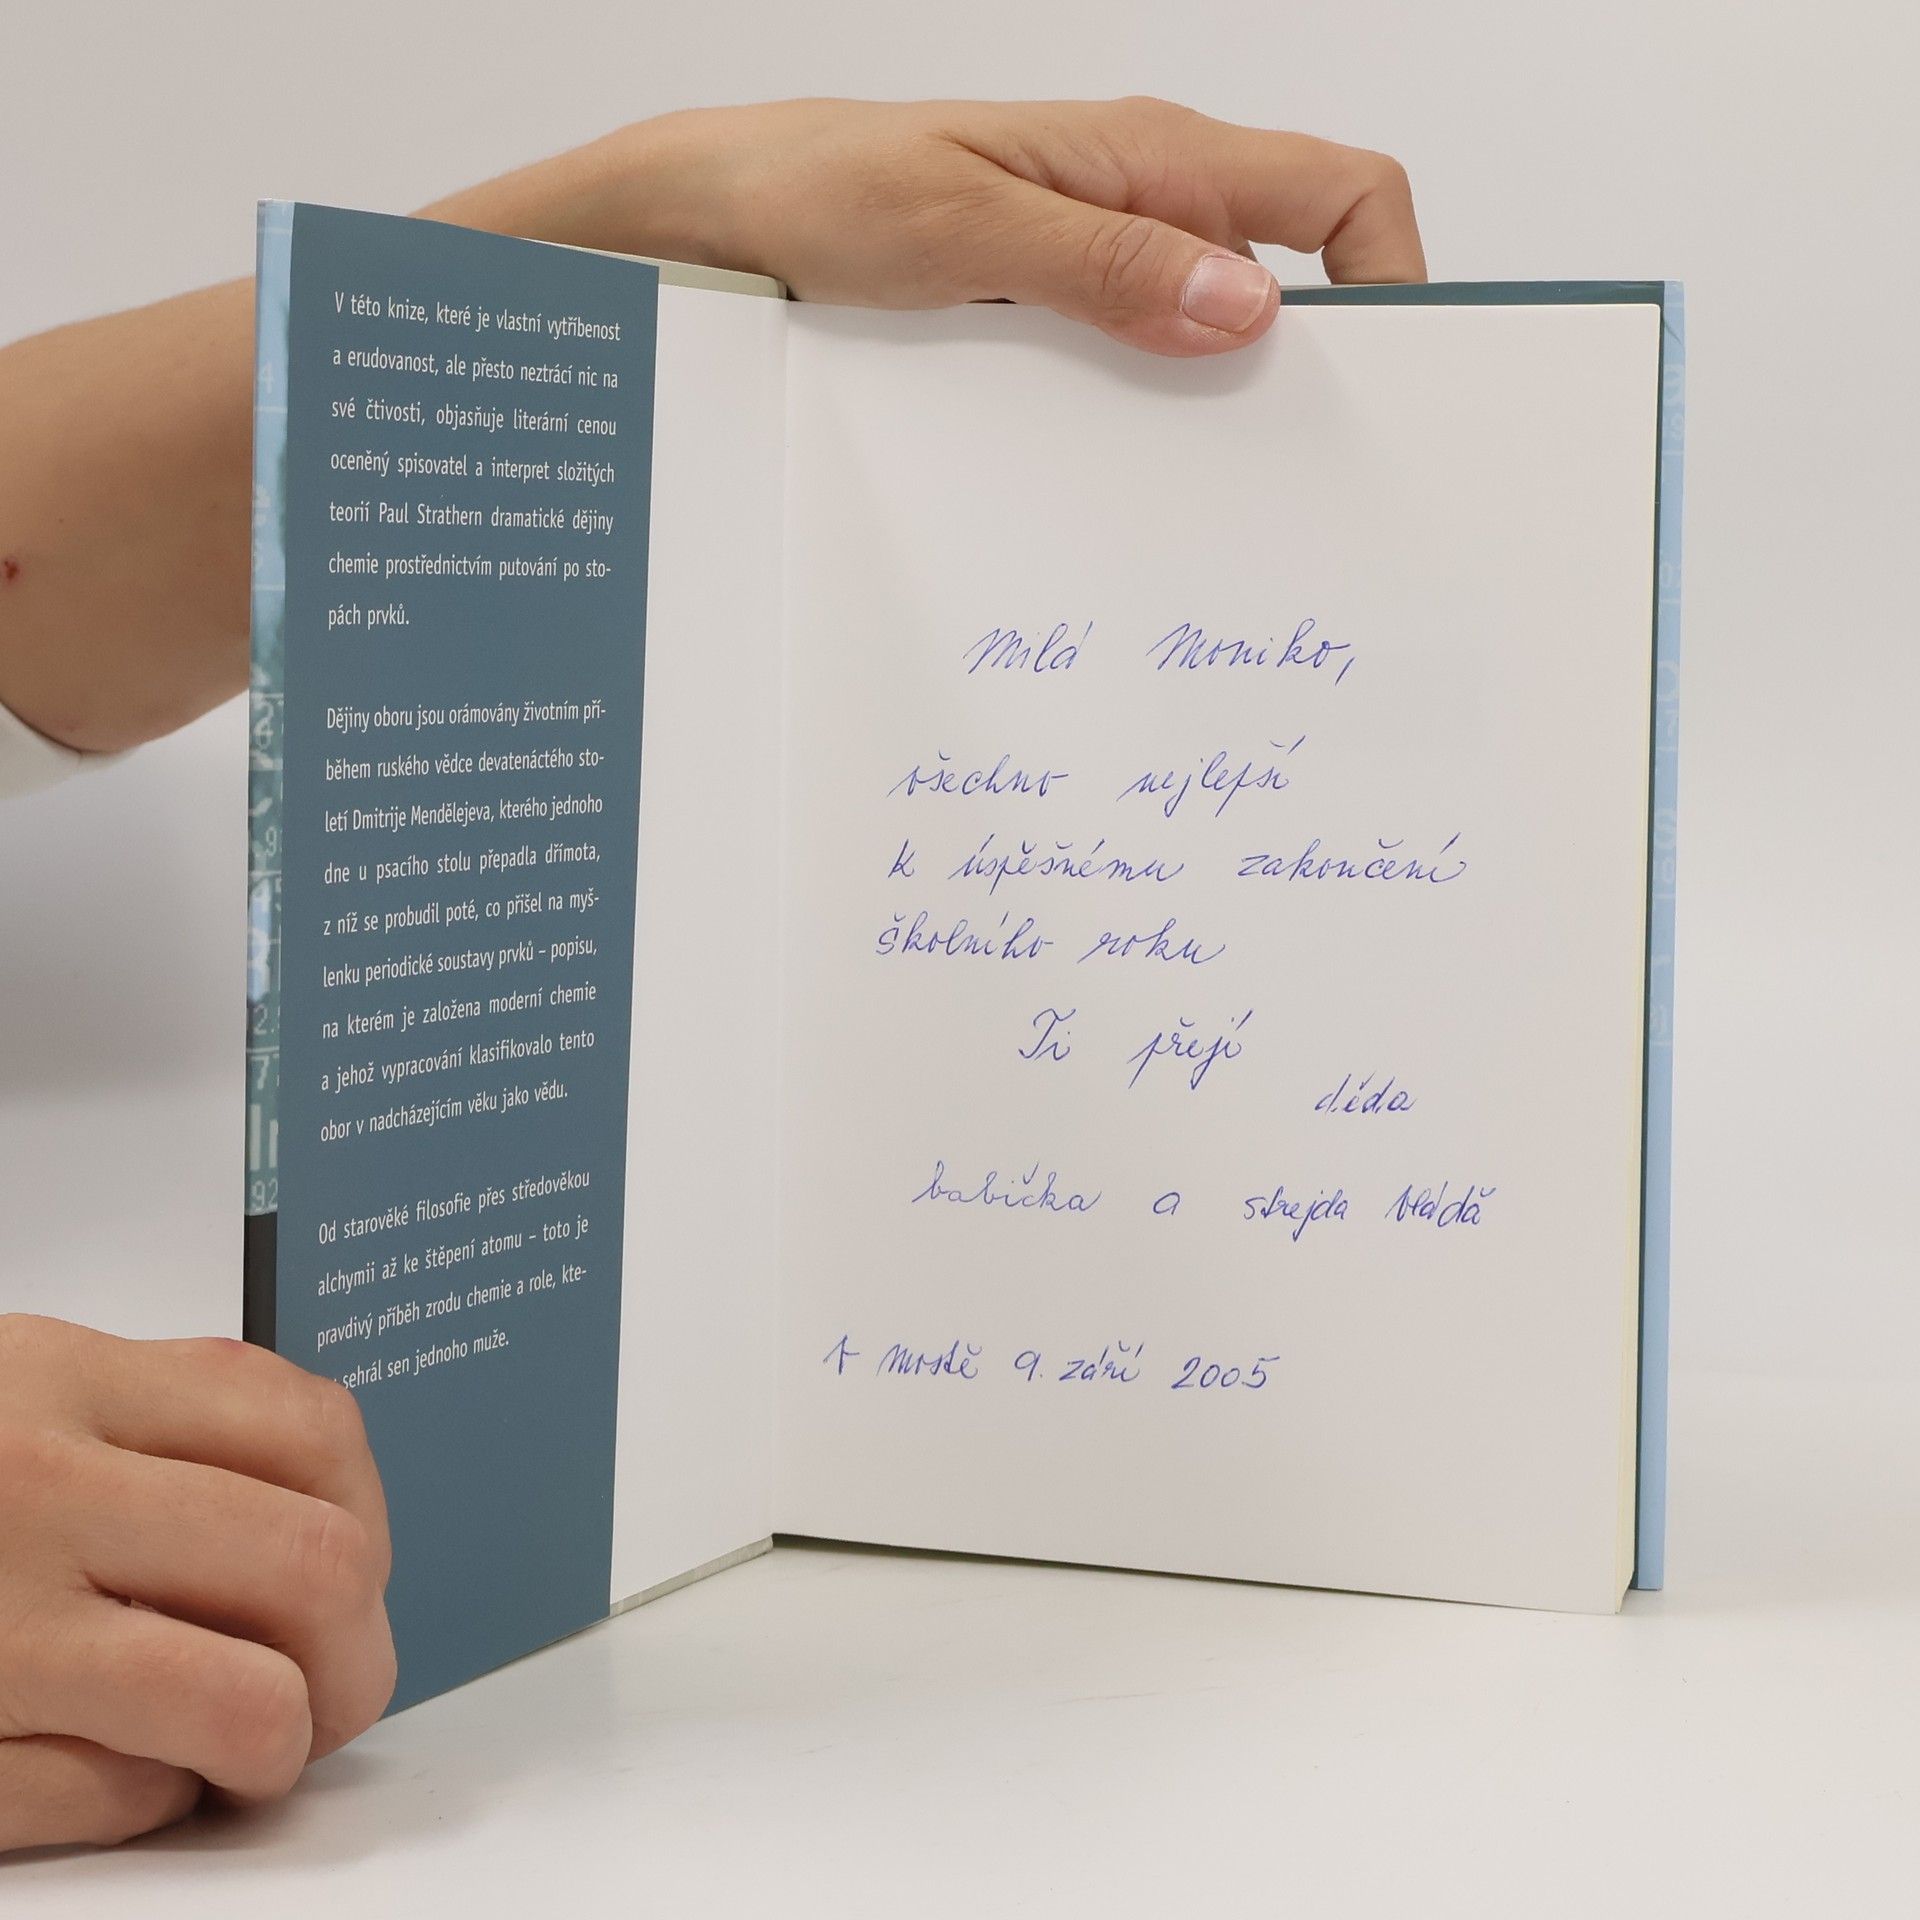 V této knize, které je vlastní vytříbenost
a erudovanost, ale přesto neztrácí nic na
své čtivosti, objasňuje literární cenou
oceněný spisovatel a interpret složitých
teorií Paul Strathern dramatické dějiny
chemie prostřednictvím putování po sto-
pách prvků.
Dějiny oboru jsou orámovány životním pří-
během ruského vědce devatenáctého sto-
letí Dmitrije Mendělejeva, kterého jednoho
dne u psacího stolu přepadla dřímota,
z níž se probudil poté, co přišel na myš-
lenku periodické soustavy prvků – popisu,
na kterém je založena moderní chemie
a jehož vypracování klasifikovalo tento
obor v nadcházejícím věku jako vědu.
Od starověké filosofie přes středověkou
alchymii až ke štěpení atomu – toto je
pravdivý příběh zrodu chemie a role, kte-
sehrál sen jednoho muže.
Milá Moniko,
všechno nejlepší
k úspěšnému zakončení
školního roku
Ti přejí
děda
babička a strejda Vláďa
V Mostě 9. září 2005